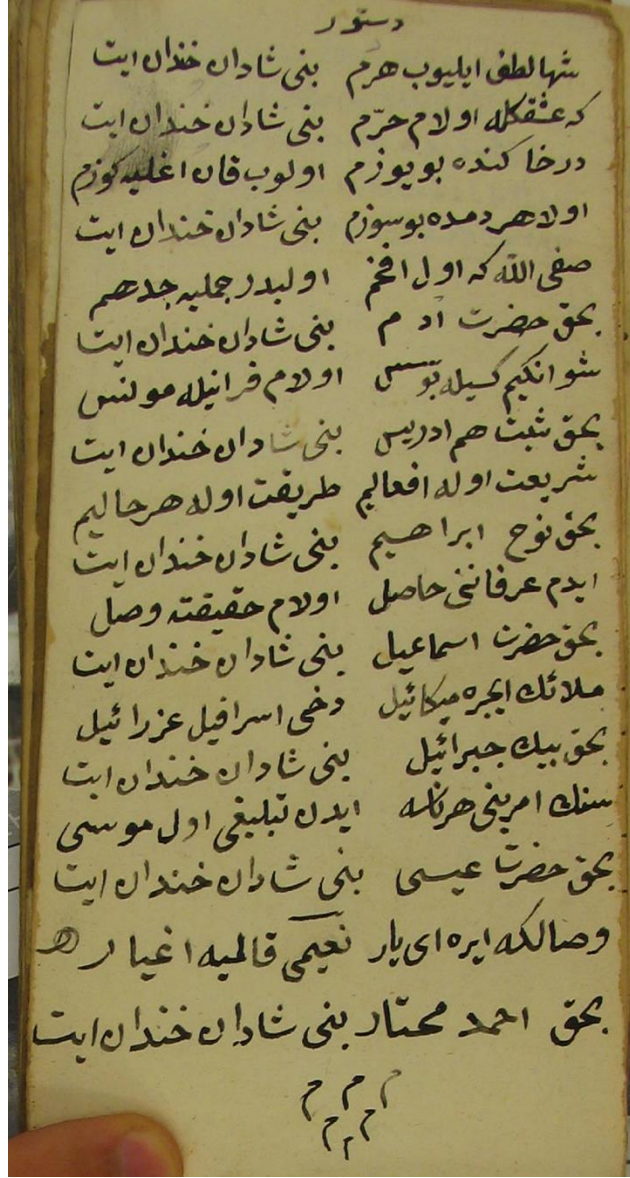 دستور
شها لطف ایلیوب هردم بنی شادان خندان ایت
که عشقکله اولام خرّم بنی شادان خندان ایت
درخاکنده بو یوزم اولوب قان اغلیه کوزم
اولا هر دمده بو سوزم بنی شادان خندان ایت
صفی الله که اول افخم اولبدر جملیه جد هم
بحق حضرت آدم بنی شادان خندان ایت
شو انکیم کسیله اولام قرانیله مونس
بحق شیت هم ادریس بنی شادان خندان ایت
شریعت اوله افعالیم طریقت اوله هر حالیم
بحق نوح ابراهیم بنی شادان خندان ایت
ایدم عرفاننی حاصل اولام حقیقته وصل
بحق حضرت اسماعیل بنی شادان خندان ایت
ملائك ایچره میکائیل دخی اسرافیل عزرائیل
بحق بیك جبرائیل بنی شادان خندان ایت
سنك امرینی ایدن تبلیغی اول موسی
بحق حضرت عیسی بنی شادان خندان ایت
وصالکه ایره ای یار نعیمی قالمیه اغیار
بحق احمد مختار بنی شادان خندان ایت
م م م
م م م